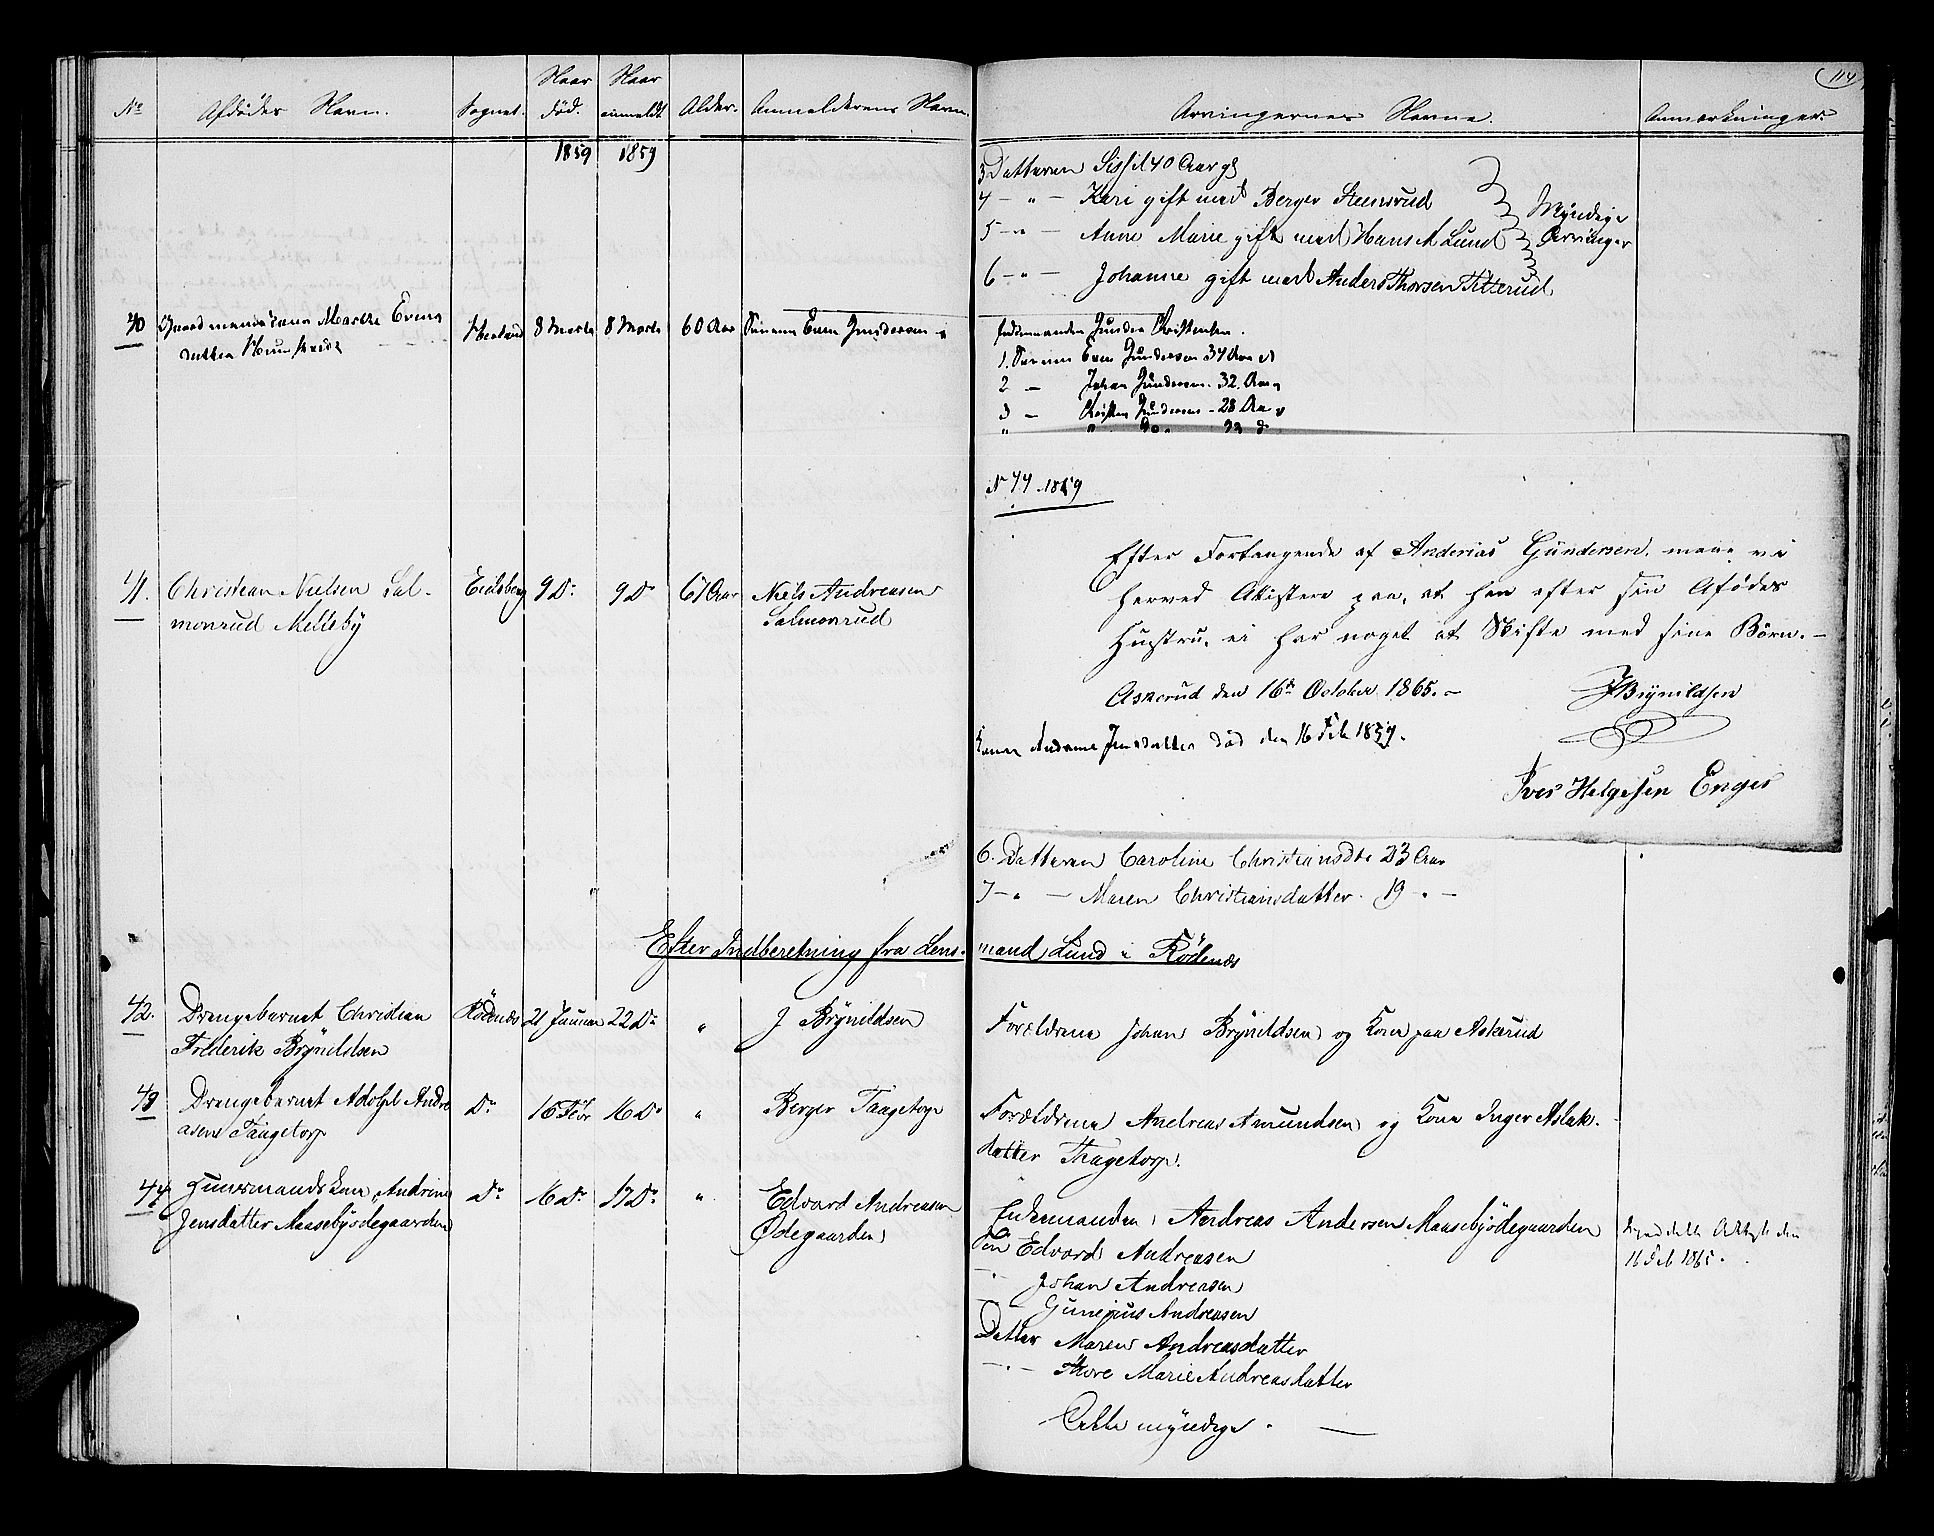 114
No Afdødes Navn. Sognet. Naar død. Naar anmeldt Alder. Anmelderens Navn.
Arvingernes Navne. Anmærkninger.
1859 1859
3 Datteren Sissil 40 Aar g
4 - " - Kari gift med Berger Steensrud
5 - " - Anne Marie gift med Hans A Lund
6 - " - Johanne gift med Anders Thorsen Titterud
Myndige Arvinger
40 Gaardmandskone Marthe Evens 8 Marts 8 Marts 60 Aar Sønnen Even Gundersen
datter
Enkemanden Gunder Christensen.
1. Sønnen Even Gundersen 34 Aar
2 - Johan Gundersen. 32. Aar
3 - Christen Gundersen - 28 Aar
41. Christian Nielsen Sal- Eidsberg 9 Do 9 Do 67 Aar Niels Andreasen
monrud Melleby Salmonrud
N 44 1859
Efter Forlangende af Anderias Gündersen, maae vi
herved Attistere paa, at han efter sin Afødes
Hustru, ei har noget at Skifte med sine Börn. -
Askerud den 16de October 1865. -
J Brynildsen
Konen Andrine Jensdatter død den 16 Feb 1859.
Iver Helgesen Enger
6. Datteren Caroline Christiansdtr 23 Aar
7 - " - Maren Christiansdatter. 19 - " -
Efter Indberetning fra Lens-mand Lund i Rødenæs
42. Drengebarnet Christian Rødenæs 21 Januar 22 Do " J Brynildsen
Frederik Brynildsen
Forældrene Johan Brynildsen og Kone paa Askerud
43 Drengebarnet Adolph Andre Do 16 Febr 16 Do " Berger Taagetorp
asens Taagetorp
Forældrene Andreas Amundsen og Kone Inger Aslak-
datter Thagetorp.
44 Huusmandskone Andrine Do 16 Do 17 Do " Edvard Andreasen
Jensdatter Maasebyødegaarden Ødegaarden
Enkemanden Andreas Andersen Maasebyødegaarden
Søn Edvard Andreasen
- " - Johan Andreasen
- " - Gunerius Andreasen
Datter Maren Andreasdatter
- " - Thore Marie Andreasdatter
Alle myndige. -
Attest den
16 Feb 1865.